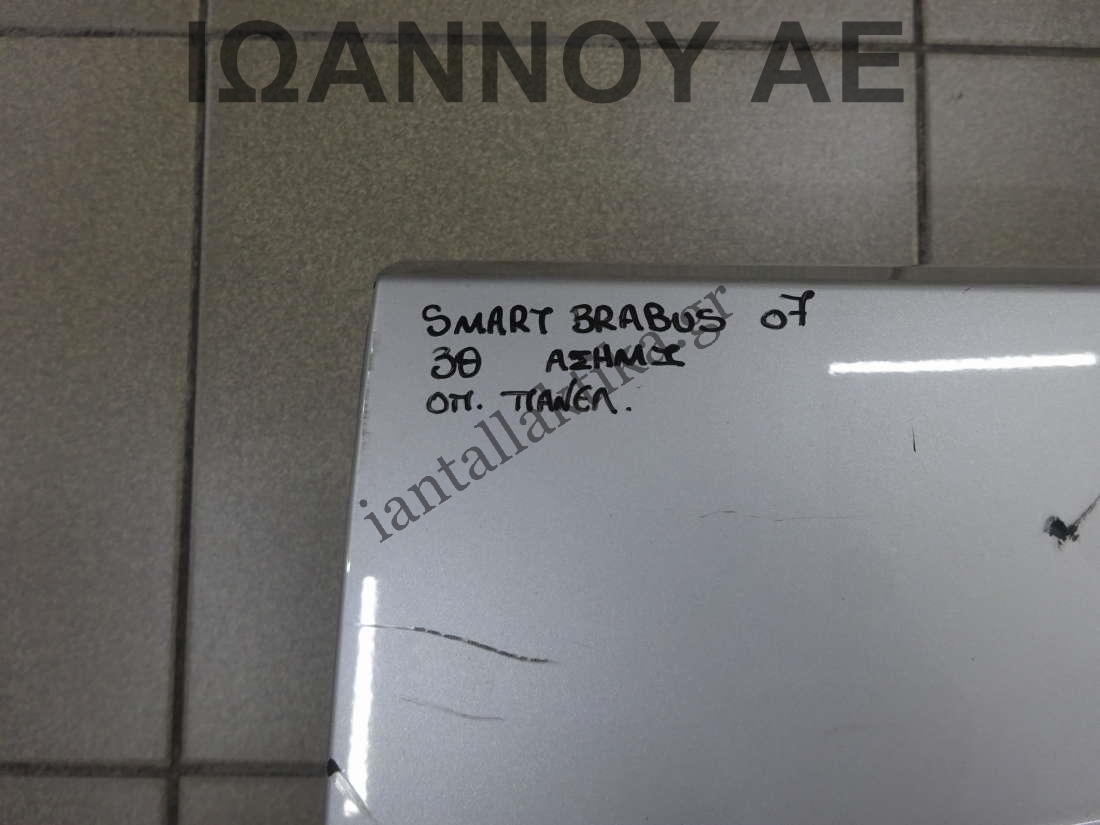 ΙΩΑΝΝΟΥ ΑΕ
SMART BRABUS 07
3Θ ΑΣΗΜΙ
ΟΠ. ΠΑΝΕΛ.
iantallaktika.gr